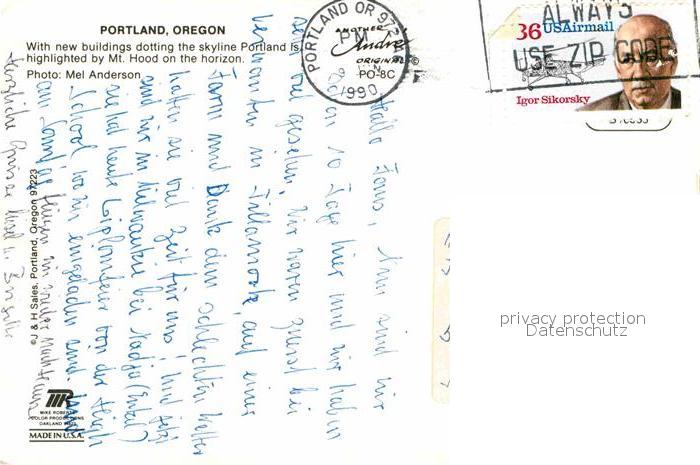 PORTLAND, OREGON
With new buildings dotting the skyline Portland is
highlighted by Mt. Hood on the horizon.
Photo: Mel Anderson
ANOTHER
Andre
ORIGINAL ©
PO-8C
PORTLAND OR 972
PM
1990
ALWAYS
USE ZIP CODE
36 USAirmail
Igor Sikorsky
Hallo Nun sind wir
schon 10 Tage hier und wir haben
so viel gesehen. Wir waren zuerst bei
Verwandten in Tillamook, auf einer
Farm und Dank dem schlechten Wetter
hatten sie viel Zeit für uns. Und jetzt
sind wir in Milwaukie bei Nadja
sie hat heute Diplomfeier von der High
School, wo wir eingeladen sind.
am fliegen wir wieder
Herzliche Grüsse
© J & H Sales, Portland, Oregon 97223
MR
MIKE ROBERTS
COLOR PRODUCTIONS
OAKLAND
MADE IN U.S.A.
privacy protection
Datenschutz